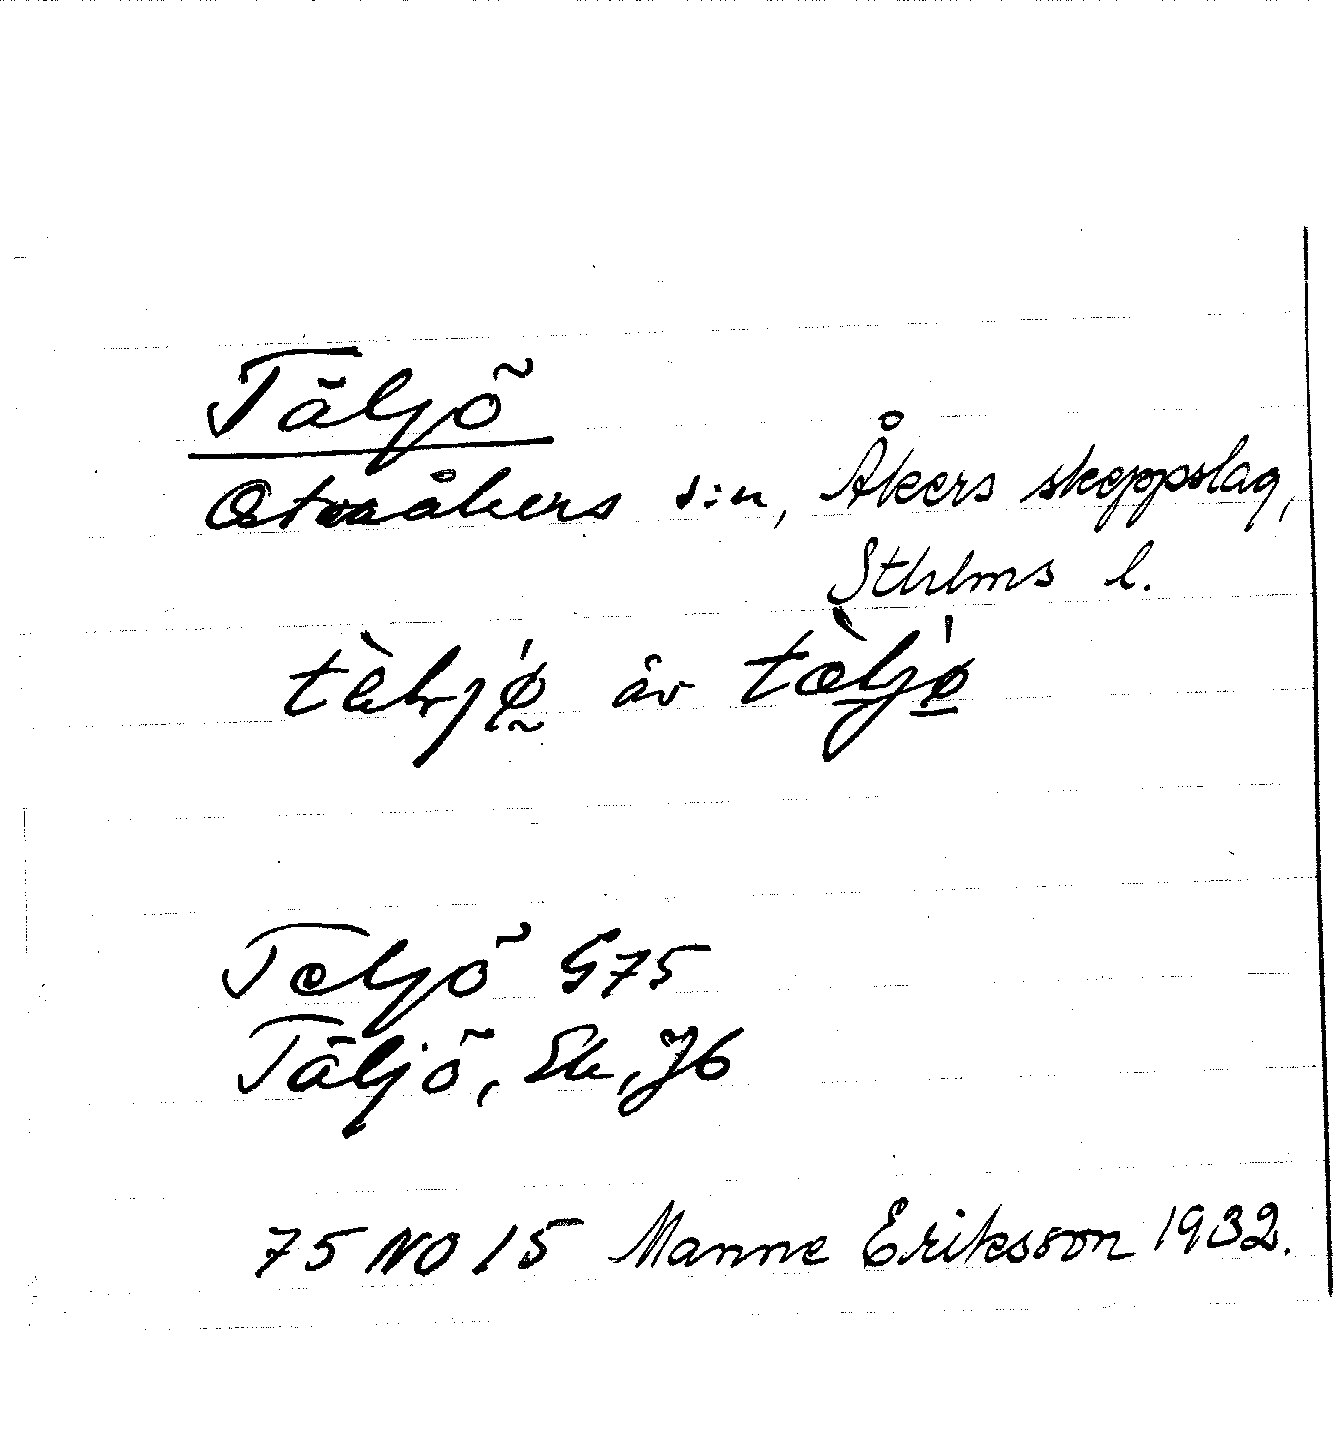 Täljö
Östraåkers s:n, Åkers skeppslag,
Sthlms l.
av
Teljö G75
Täljö, Ek, J6
75 NO 15 Manne Eriksson 1932.